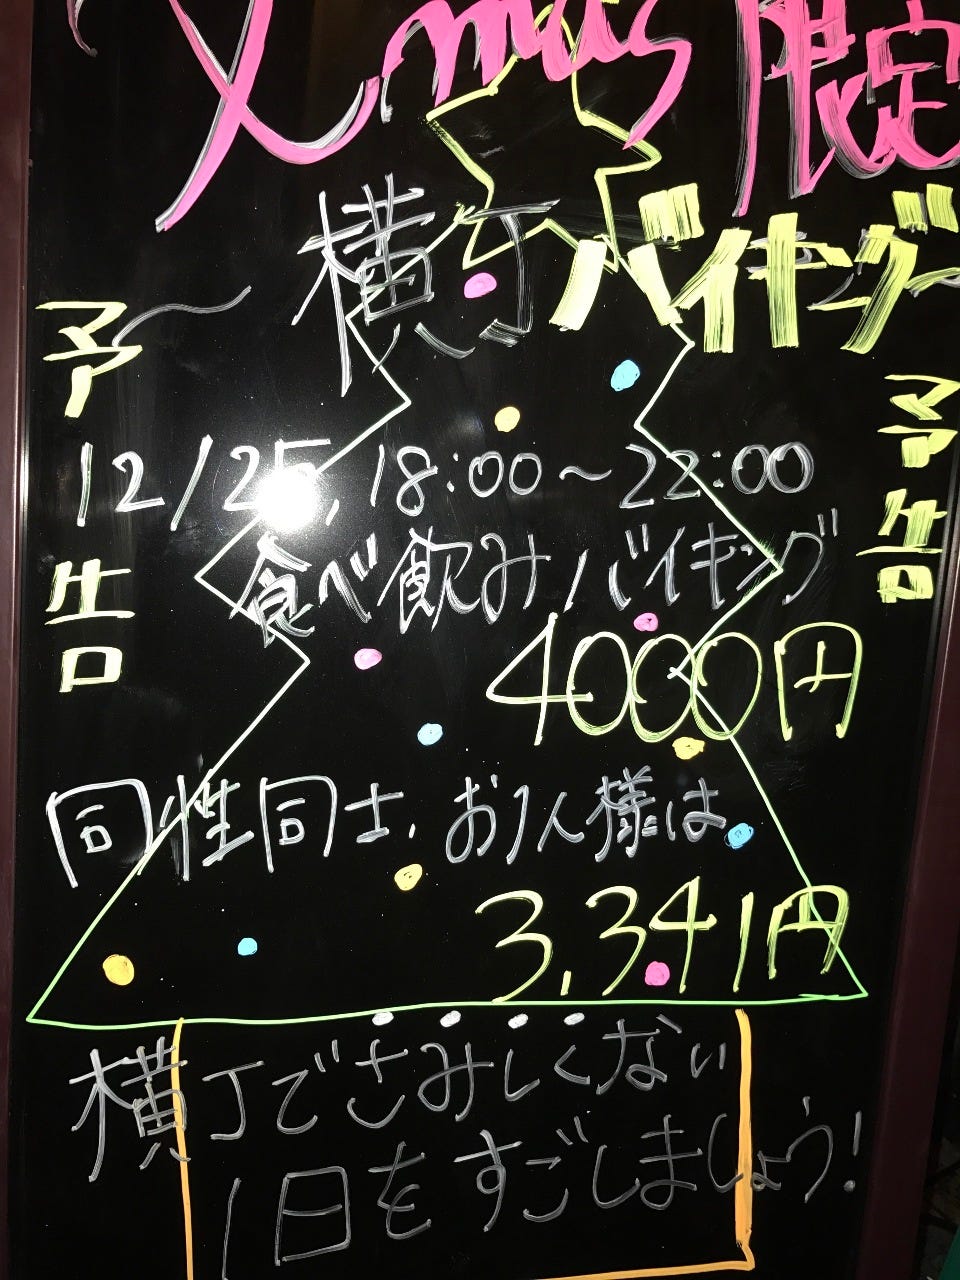 Xmas限定
〜横丁バイキング〜
予告
予告
12/25, 18:00〜22:00
食べ飲みバイキング
4000円
同性同士、お1人様は
3,341円
横丁でさみしくない
1日をすごしましょう!